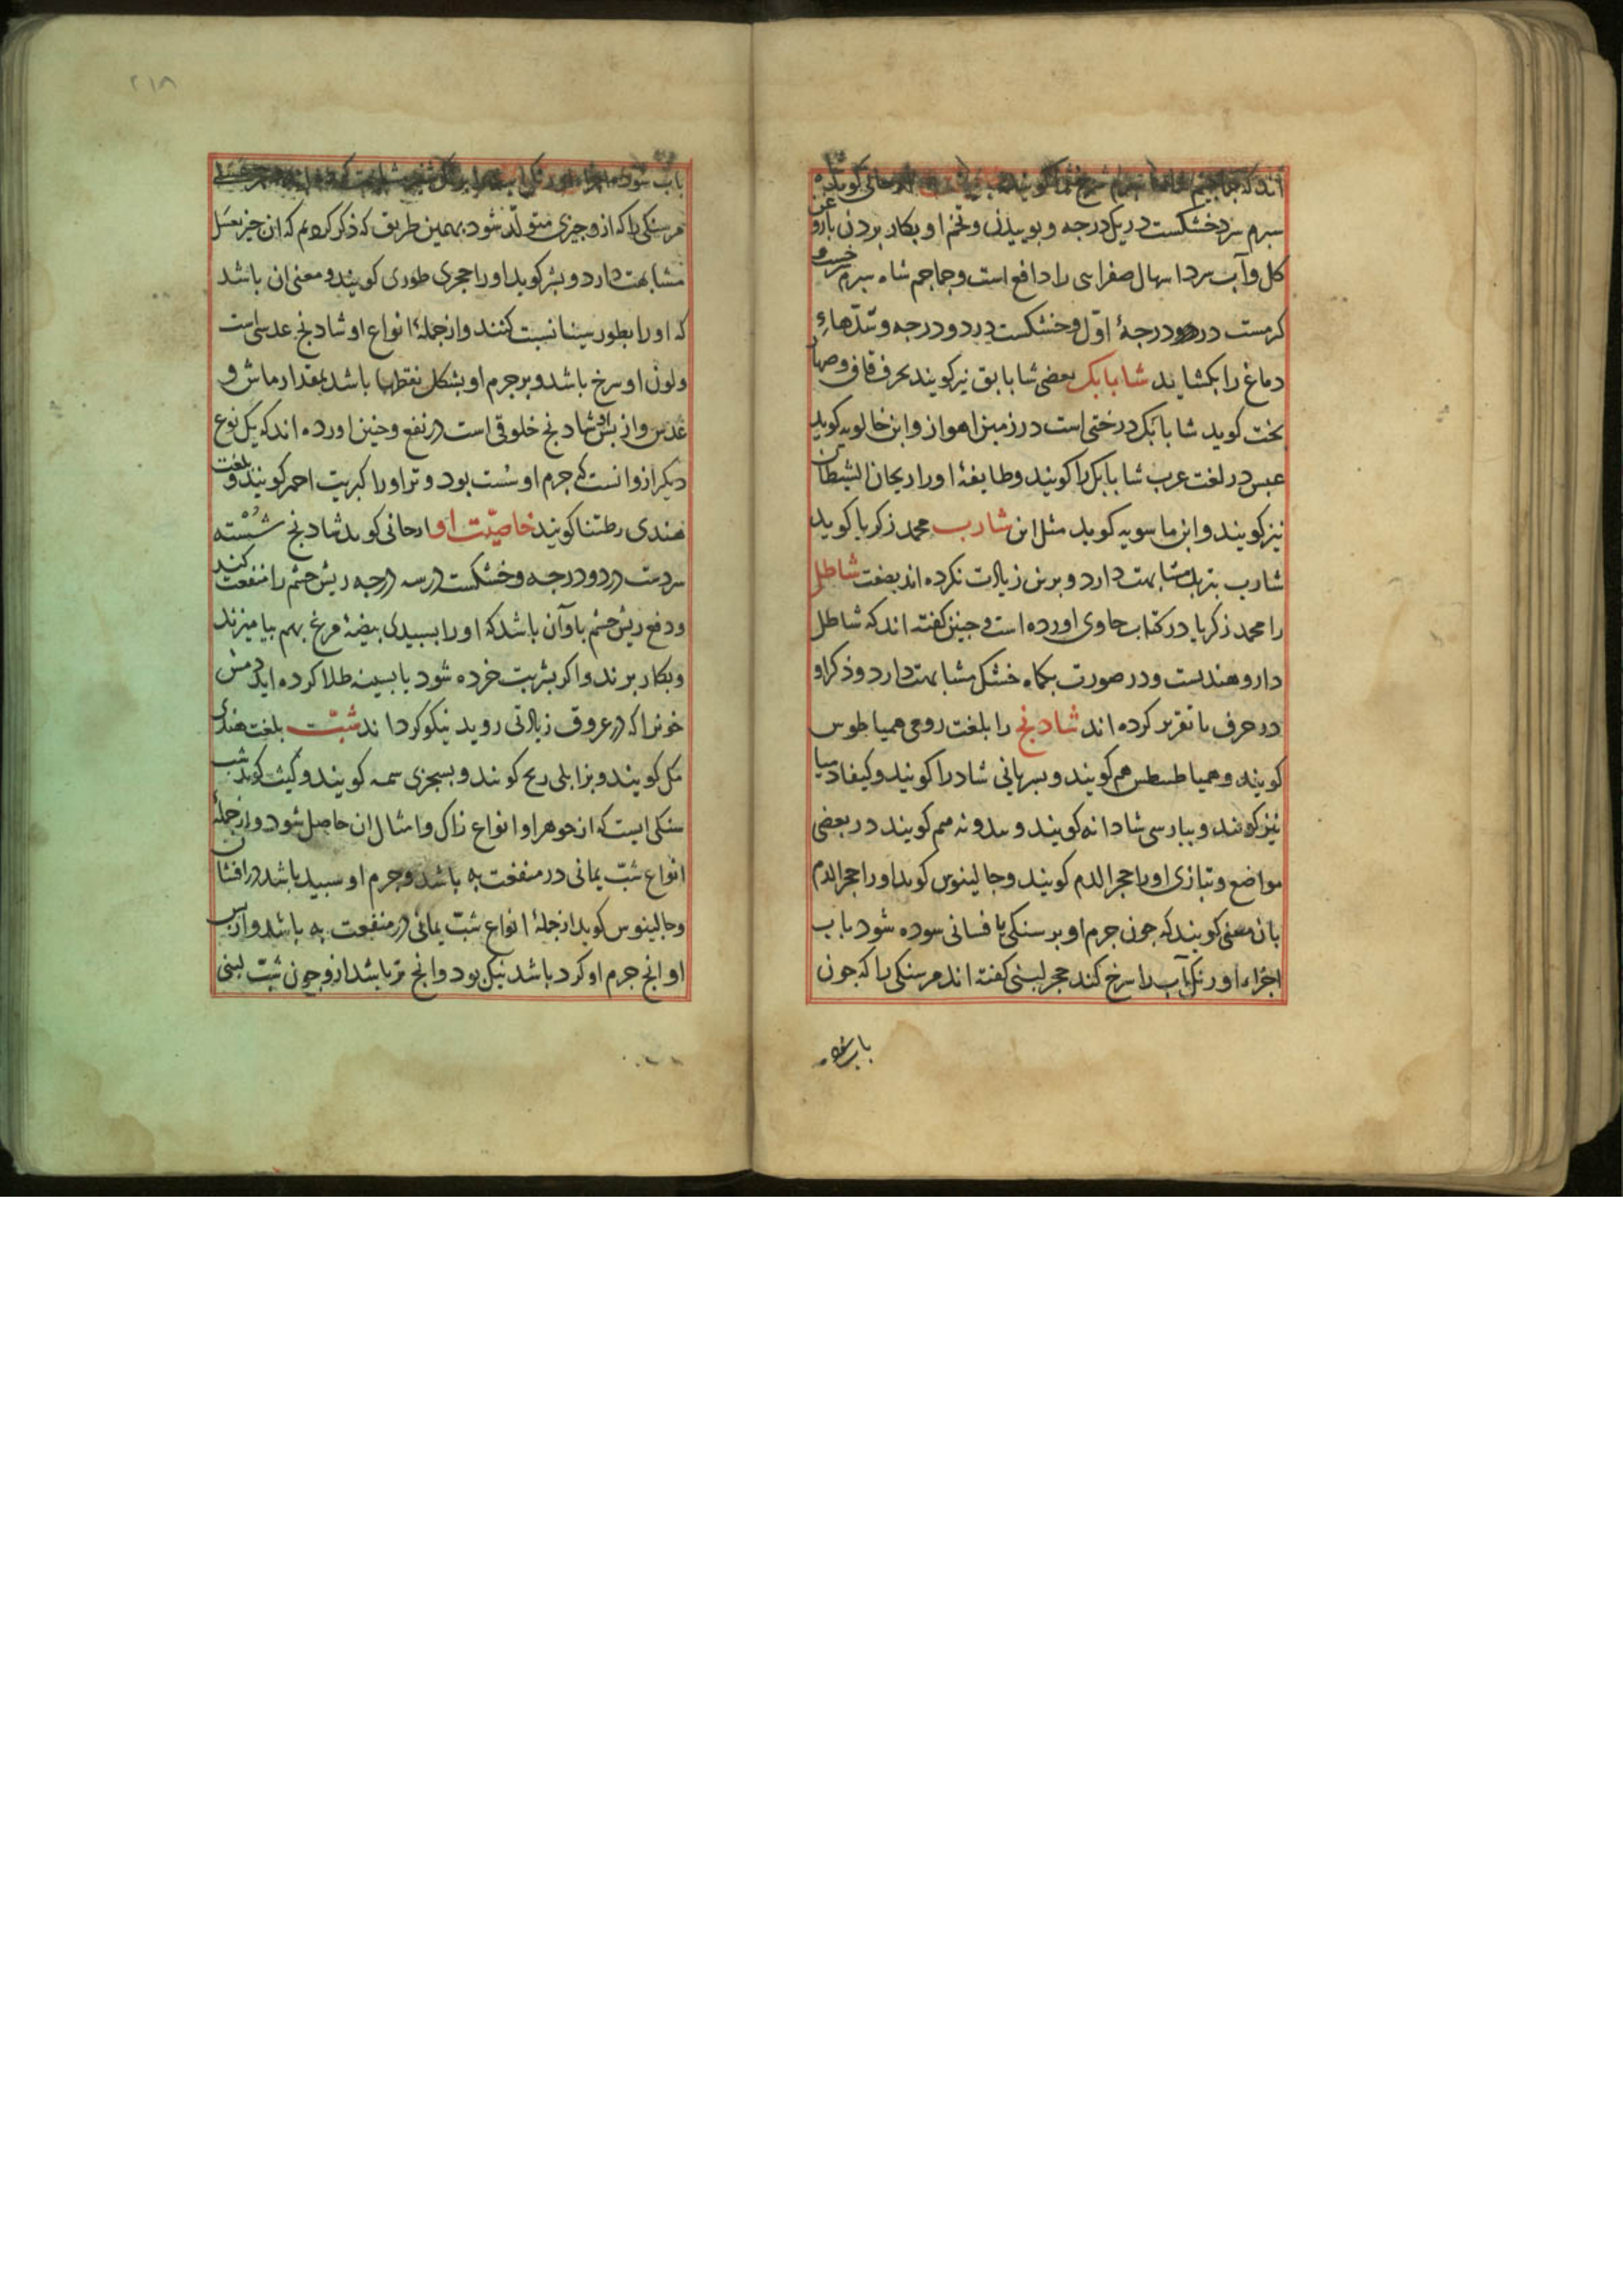 اند که
سبرم سردخشکست در یک درجه و بوییدن و تخم او بکار بردن باروغن
کل و آب سرد اسهال صفرایی را دافع است و جماجم شاه سبرم
کرمست در درجهٔ اوّل و خشکست در دو درجه و سدّهاء
دماغ را بکشاید شابابک بعضی شابابق نیز کویند بحرف قاف و صهار
بخت کوید شابابک درختی است در زمین اهواز و ابن خالویه کوید
عبس در لغت عرب شابابک را کویند و طایفهٔ او را ریحان الشیطان
نیز کویند و ابن ماسویه کوید مثل این شارب محمد زکریا کوید
شارب بتربد مشابهت دارد و برین زیادت نکرده اند بصفت شاطل
را محمد زکریا در کتاب حاوی اورده است و چنین کفته اند که شاطل
دارو هندیست و در صورت بکماه خشک مشابهت دارد و ذکر او
در حرف با تقریر کرده اند شادنج را بلغت رومی همیاطوس
کویند و همیاطیطس هم کویند و بسریانی شادرا کویند و کیفادمیا
نیز کویند و ببارسی شادانه کویند و بیدونه هم کویند در بعضی
مواضع و بتازی او را حجر الدم کویند و جالینوس کوید او را حجر الدم
بان معنی کویند که جون جرم او بر سنکی یا فسانی سوده شود باب
اجزاء او رنک آب را سرخ کند حجر لبنی کفته اند مر سنکی را که جون
باب سوده
۲۱۸
باب سوده
مر سنکی را که ازو جیزی متولّد شود بهمین طریق که ذکر کردیم که ان جیز بعسل
مشابهت دارد و بشر کوید او را حجری طوری کویند و معنی ان باشد
که او را بطور سینا نسبت کنند و از جملهٔ انواع او شادنج عدسی است
و لون او سرخ باشد و بر جرم او بشکل نقطها باشد بمقدار ماش و
عدس و از بس او شادنج خلوقی است در نفع و جنین اورده اند که یک نوع
دیکر ازو انست که جرم او سُست بود و تر او را کبریت احمر کویند و بلغت
هندی رطتنا کویند خاصیّت او ارجانی کوید شادنج شُسْته
سردست در دو درجه و خشکست در سه درجه ریش جشم را منفعت کند
و دفع ریش جشم باو آن باشد که او را بسبیدی بیضهٔ مرغ بهم بیامیزند
و بکار برند و اکر بشربت خرده شود یا بسینه طلا کرده اید دمش
خونرا که در عروق زیادتی روید نیکو کرداند شبّت بلغت هندی
مکل کویند و بزابلی ریح کویند و بسجزی سمه کویند و کیث کوید شب
سنکی ایست که از جوهر او انواع زاک و امثال ان حاصل شود و از جملهٔ
انواع شبّ یمانی در منفعت به باشد و جرم او سبید باشد درافشان
و جالینوس کوید از جملهٔ انواع شبّ یمانی در منفعت به باشد و از بس
او انج جرم او کرد باشد نیک بود و انج تر باشد ازو جون شبّ لبنی